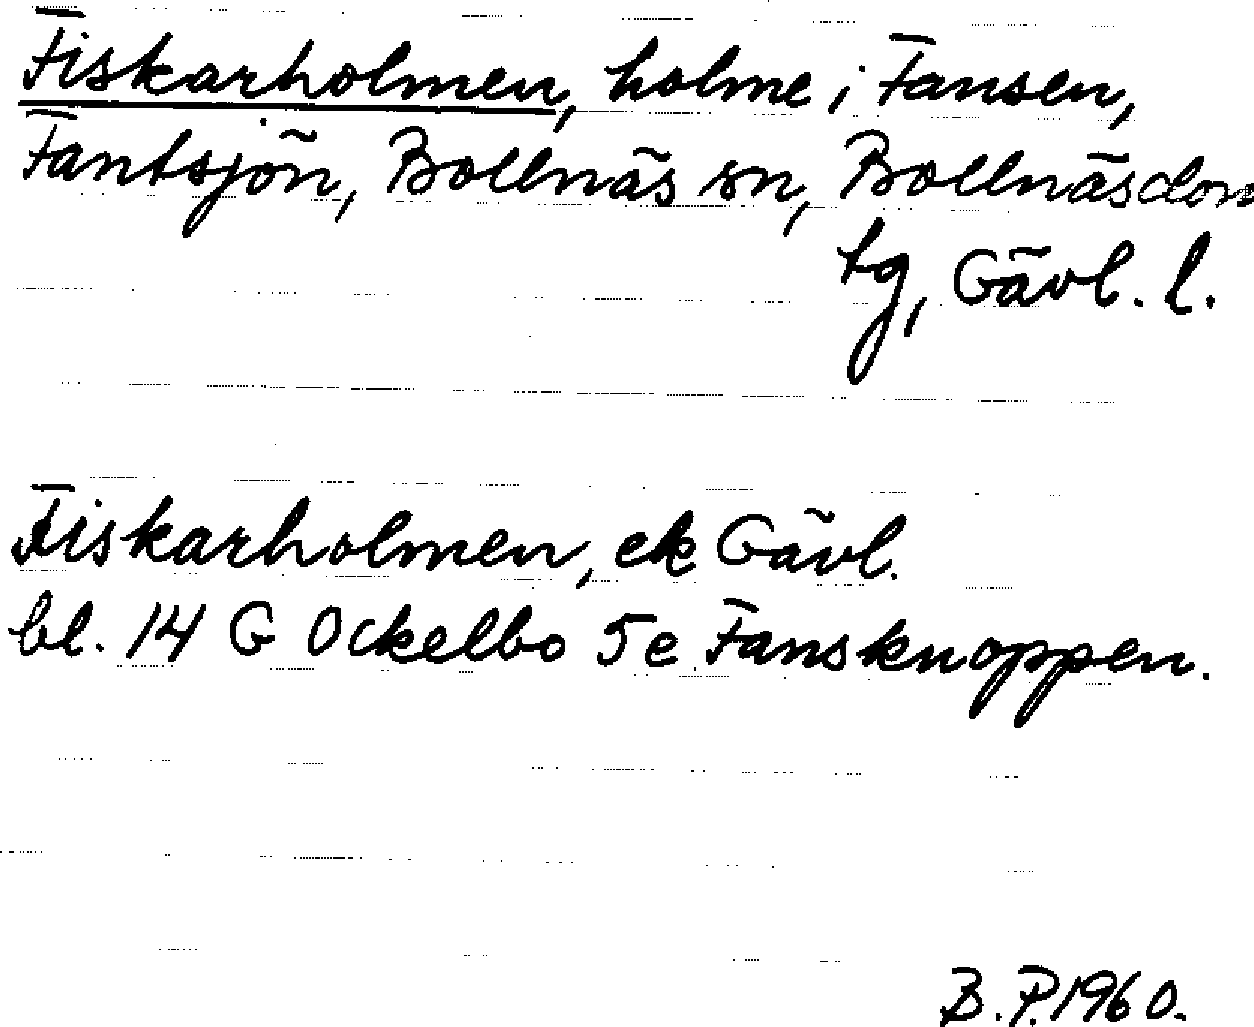 Fiskarholmen, holme i Fansen,
Fantsjön, Bollnäs sn, Bollnäsdom
tg, Gävl. l.
Fiskarholmen, ek Gävl.
bl. 14 G Ockelbo 5e Fansknoppen.
B.P. 1960.